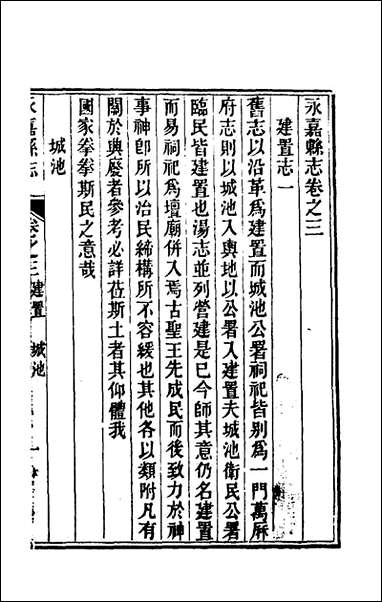 永嘉縣志卷之三
建置志一
舊志以沿革爲建置而城池公署祠祀皆别爲一門萬歴
府志則以城池入輿地以公署入建置夫城池衛民公署
臨民皆建置也湯志並列營建是已今師其意仍名建置
而易祠祀爲壇廟併入焉古聖王先成民而後致力於神
事神卽所以治民締構所不容緩也其他各以類附凡有
關於典廢者參考必詳莅斯土者其仰體我
國家拳拳斯民之意哉
城池
永嘉縣志
卷之三建置 城池
一